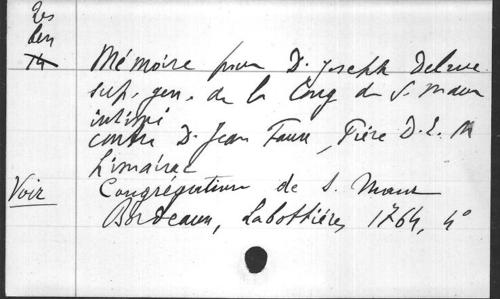 Res
ben
74
Mémoire pour D. Joseph Delrue
sup. gen. de la Cong de S. Maur
intimé
contre D. Jean Faure, Pierre D. L. M
Limairac
Voir Congrégation de S. Maur
Bordeaux, Labottière, 1764, 4°